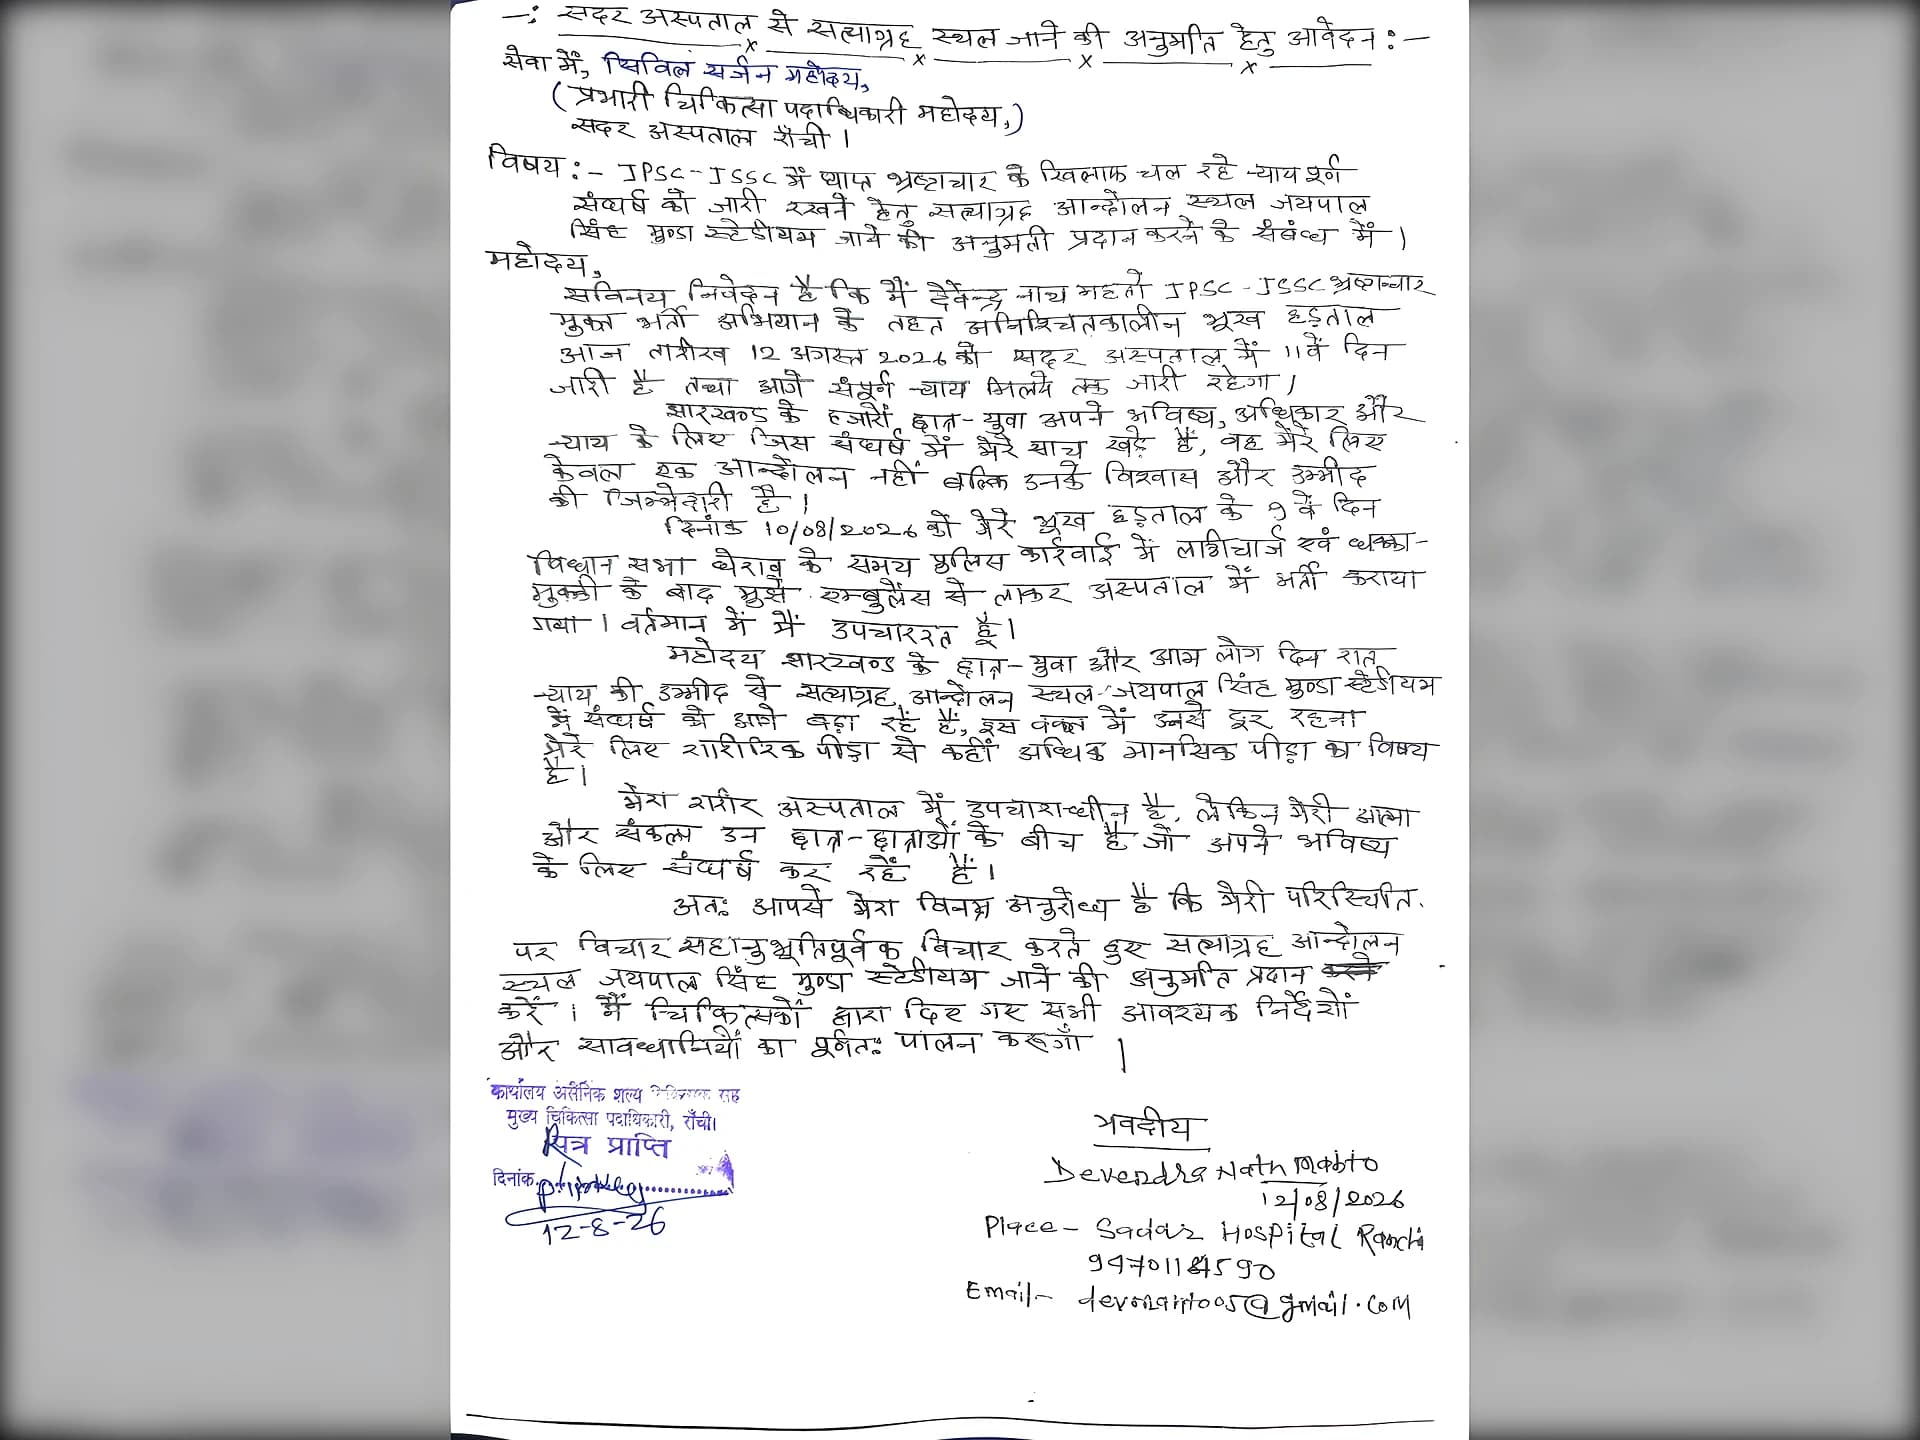 -: सदर अस्पताल से सत्याग्रह स्थल जाने की अनुमति हेतु आवेदन :-
सेवा में, सिविल सर्जन महोदय,
(प्रभारी चिकित्सा पदाधिकारी महोदय,)
सदर अस्पताल राँची ।
विषय :- JPSC-JSSC में व्याप्त भ्रष्टाचार के खिलाफ चल रहे न्यायपूर्ण
संघर्ष को जारी रखने हेतु सत्याग्रह आन्दोलन स्थल जयपाल
सिंह मुण्डा स्टेडीयम जाने की अनुमती प्रदान करने के संबंध में ।
महोदय,
सविनय निवेदन है कि मैं देवेन्द्र नाथ महतो JPSC-JSSC भ्रष्टाचार
मुक्त भर्ती अभियान के तहत अनिश्चितकालीन भूख हड़ताल
आज तारीख 12 अगस्त 2026 को सदर अस्पताल में 11वें दिन
जारी है तथा आगे संपूर्ण न्याय मिलने तक जारी रहेगा ।
झारखण्ड के हजारों छात्र-युवा अपने भविष्य, अधिकार और
न्याय के लिए जिस संघर्ष में मेरे साथ खड़े हैं, वह मेरे लिए
केवल एक आन्दोलन नहीं बल्कि उनके विश्वास और उम्मीद
की जिम्मेदारी है ।
दिनांक 10/08/2026 को मेरे भूख हड़ताल के 9 वें दिन
विधान सभा घेराव के समय पुलिस कार्रवाई में लाठीचार्ज एवं धक्का-
मुक्की के बाद मुझे एम्बुलेंस से लाकर अस्पताल में भर्ती कराया
गया । वर्तमान में मैं उपचाररत हूँ ।
महोदय झारखण्ड के छात्र-युवा और आम लोग दिन रात
न्याय की उम्मीद से सत्याग्रह आन्दोलन स्थल-जयपाल सिंह मुण्डा स्टेडीयम
में संघर्ष को आगे बढ़ा रहें हैं, इस वक्त में उनसे दूर रहना
मेरे लिए शारीरिक पीड़ा से कहीं अधिक मानसिक पीड़ा का विषय
है ।
मेरा शरीर अस्पताल में उपचाराधीन है, लेकिन मेरी आत्मा
और संकल्प उन छात्र-छात्राओं के बीच है जो अपने भविष्य
के लिए संघर्ष कर रहें हैं ।
अतः आपसे मेरा विनम्र अनुरोध है कि मेरी परिस्थिति
पर विचार सहानुभूतिपूर्वक विचार करते हुए सत्याग्रह आन्दोलन
स्थल जयपाल सिंह मुण्डा स्टेडीयम जाने की अनुमति प्रदान करने
करें । मैं चिकित्सकों द्वारा दिए गए सभी आवश्यक निर्देशों
और सावधानियों का पूर्णतः पालन करूगाँ ।
कार्यालय असैनिक शल्य चिकित्सक सह
मुख्य चिकित्सा पदाधिकारी, राँची।
पत्र प्राप्ति
दिनांक
12-8-26
भवदीय
Devendra Nath Mahto
12/08/2026
Place- Sadar Hospital Ranchi
Email-
@gmail.com